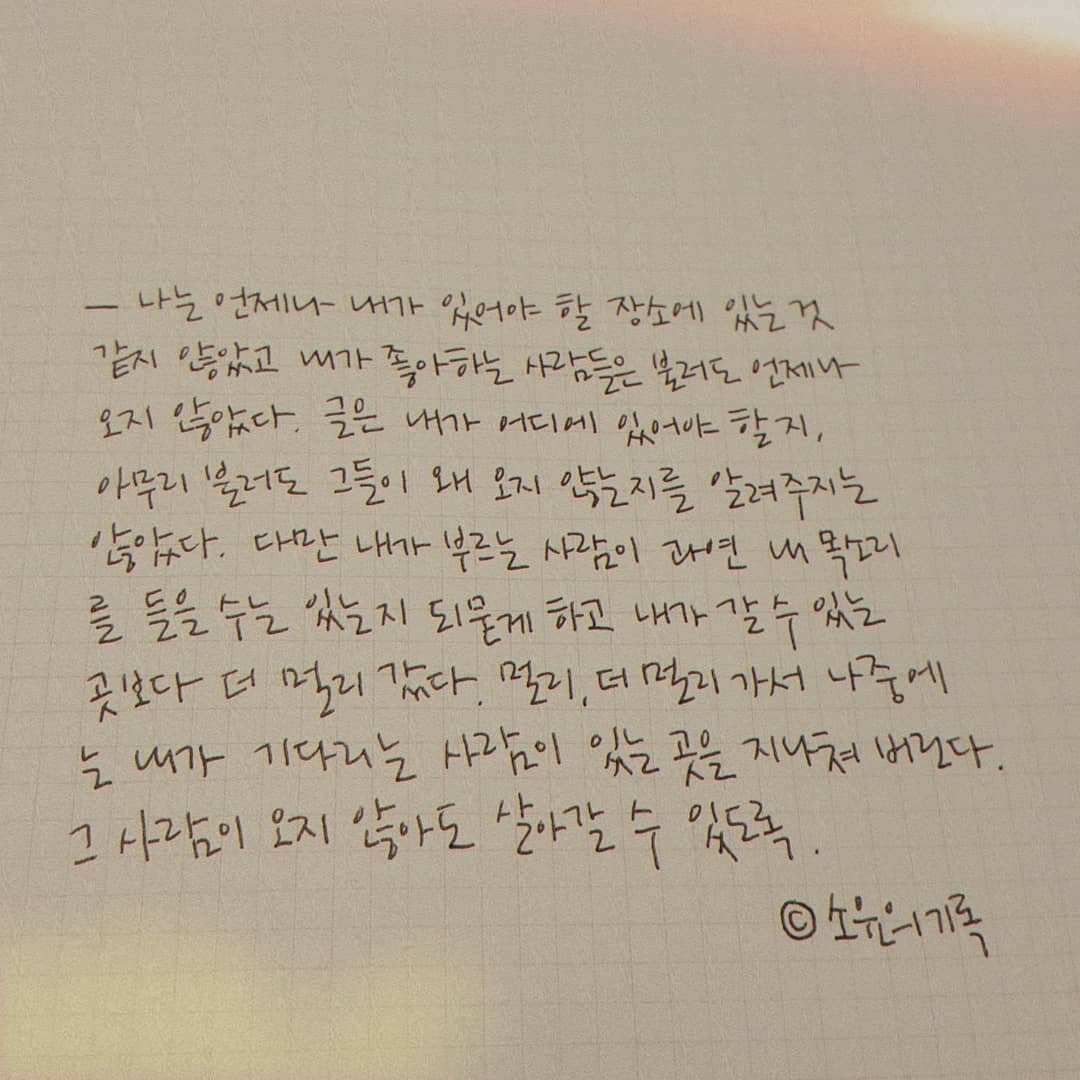 — 나는 언제나 내가 있어야 할 장소에 있는 것
같지 않았고 내가 좋아하는 사람들은 불러도 언제나
오지 않았다. 글은 내가 어디에 있어야 할지,
아무리 불러도 그들이 왜 오지 않는지를 알려주지는
않았다. 다만 내가 부르는 사람이 과연 내 목소리
를 들을 수는 있는지 되묻게 하고 내가 갈 수 있는
곳보다 더 멀리 갔다. 멀리, 더 멀리 가서 나중에
는 내가 기다리는 사람이 있는 곳을 지나쳐 버린다.
그 사람이 오지 않아도 살아갈 수 있도록.
© 소윤의기록